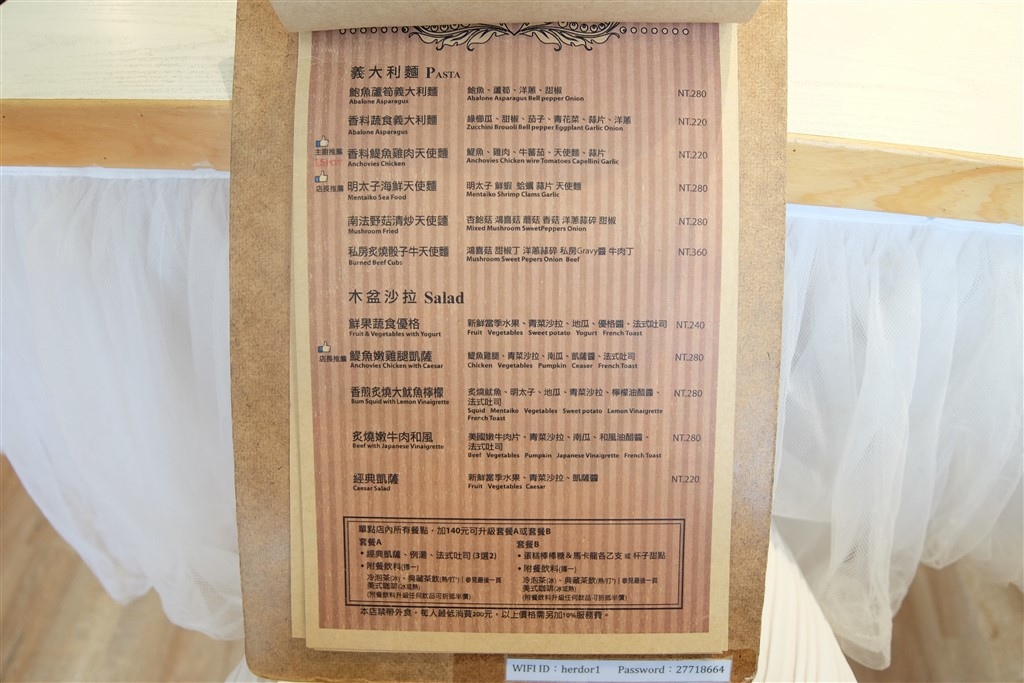 義大利麵 PASTA
鮑魚蘆筍義大利麵 鮑魚、蘆筍、洋蔥、甜椒 NT.280
Abalone Asparagus Abalone Asparagus Bell pepper Onion
香料蔬食義大利麵 綠櫛瓜、甜椒、茄子、青花菜、蒜片、洋蔥 NT.220
Abalone Asparagus Zucchini Brouoli Bell pepper Eggplant Garlic Onion
主廚推薦 香料鯷魚雞肉天使麵 鯷魚、雞肉、牛蕃茄、天使麵、蒜片 NT.220
Anchovies Chicken Anchovies Chicken wire Tomatoes Capellini Garlic
店長推薦 明太子海鮮天使麵 明太子 鮮蝦 蛤蠣 蒜片 天使麵 NT.280
Mentaiko Sea Food Mentaiko Shrimp Clams Garlic
南法野菇清炒天使麵 杏鮑菇 鴻喜菇 蘑菇 香菇 洋蔥蒜碎 甜椒 NT.280
Mushroom Fried Mixed Mushroom SweetPeppers Onion
私房炙燒骰子牛天使麵 鴻喜菇 甜椒丁 洋蔥蒜碎 私房Gravy醬 牛肉丁 NT.360
Burned Beef Cubs Mushroom Sweet Pepers Onion Beef
木盆沙拉 Salad
鮮果蔬食優格 新鮮當季水果、青菜沙拉、地瓜、優格醬、法式吐司 NT.240
Fruit & Vegetables with Yogurt Fruit Vegetables Sweet potato Yogurt French Toast
店長推薦 鯷魚嫩雞腿凱薩 鯷魚雞腿、青菜沙拉、南瓜、凱薩醬、法式吐司 NT.280
Anchovies Chicken with Caesar Chicken Vegetables Pumpkin Ceaser French Toast
香煎炙燒大魷魚檸檬 炙燒魷魚、明太子、地瓜、青菜沙拉、檸檬油醋醬、 NT.280
法式吐司
Bum Squid with Lemon Vinaigrette Squid Mentaiko Vegetables Sweet potato Lemon Vinaigrette
French Toast
炙燒嫩牛肉和風 美國嫩牛肉片、青菜沙拉、南瓜、和風油醋醬、 NT.280
法式吐司
Beef with Japanese Vinaigrette Beef Vegetables Pumpkin Japanese Vinaigrette French Toast
經典凱薩 新鮮當季水果、青菜沙拉、凱薩醬 NT.220
Caesar Salad Fruit Vegetables Caesar
單點店內所有餐點，加140元可升級套餐A或套餐B
套餐A
• 經典凱薩、例湯、法式吐司 (3選2)
• 附餐飲料(擇一)
冷泡茶(冰)、典藏茶飲(熱/打*) | 參見最後一頁
美式咖啡(冰或熱)
(附餐飲料升級任何飲品可折抵半價)
套餐B
• 蛋糕棒棒糖&馬卡龍各乙支 或 杯子甜點
• 附餐飲料(擇一)
冷泡茶(冰)、典藏茶飲(熱/打*) | 參見最後一頁
美式咖啡(冰或熱)
(附餐飲料升級任何飲品可折抵半價)
本店禁帶外食，每人最低消費200元，以上價格需另加10%服務費。
WIFI ID：herdor1 Password：27718664